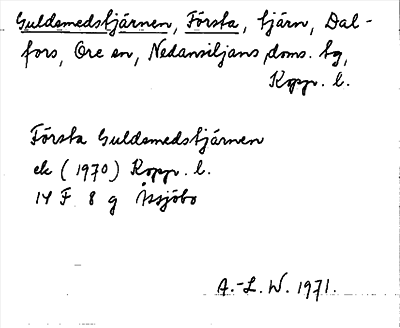 Guldsmedstjärnen, Första, tjärn, Dal-
fors, Ore sn, Nedansiljans doms. tg,
Kopp. l.
Första Guldsmedstjärnen
ek (1970) Kopp. l.
14 F 8 g Åssjöbo
A.-L. W. 1971.